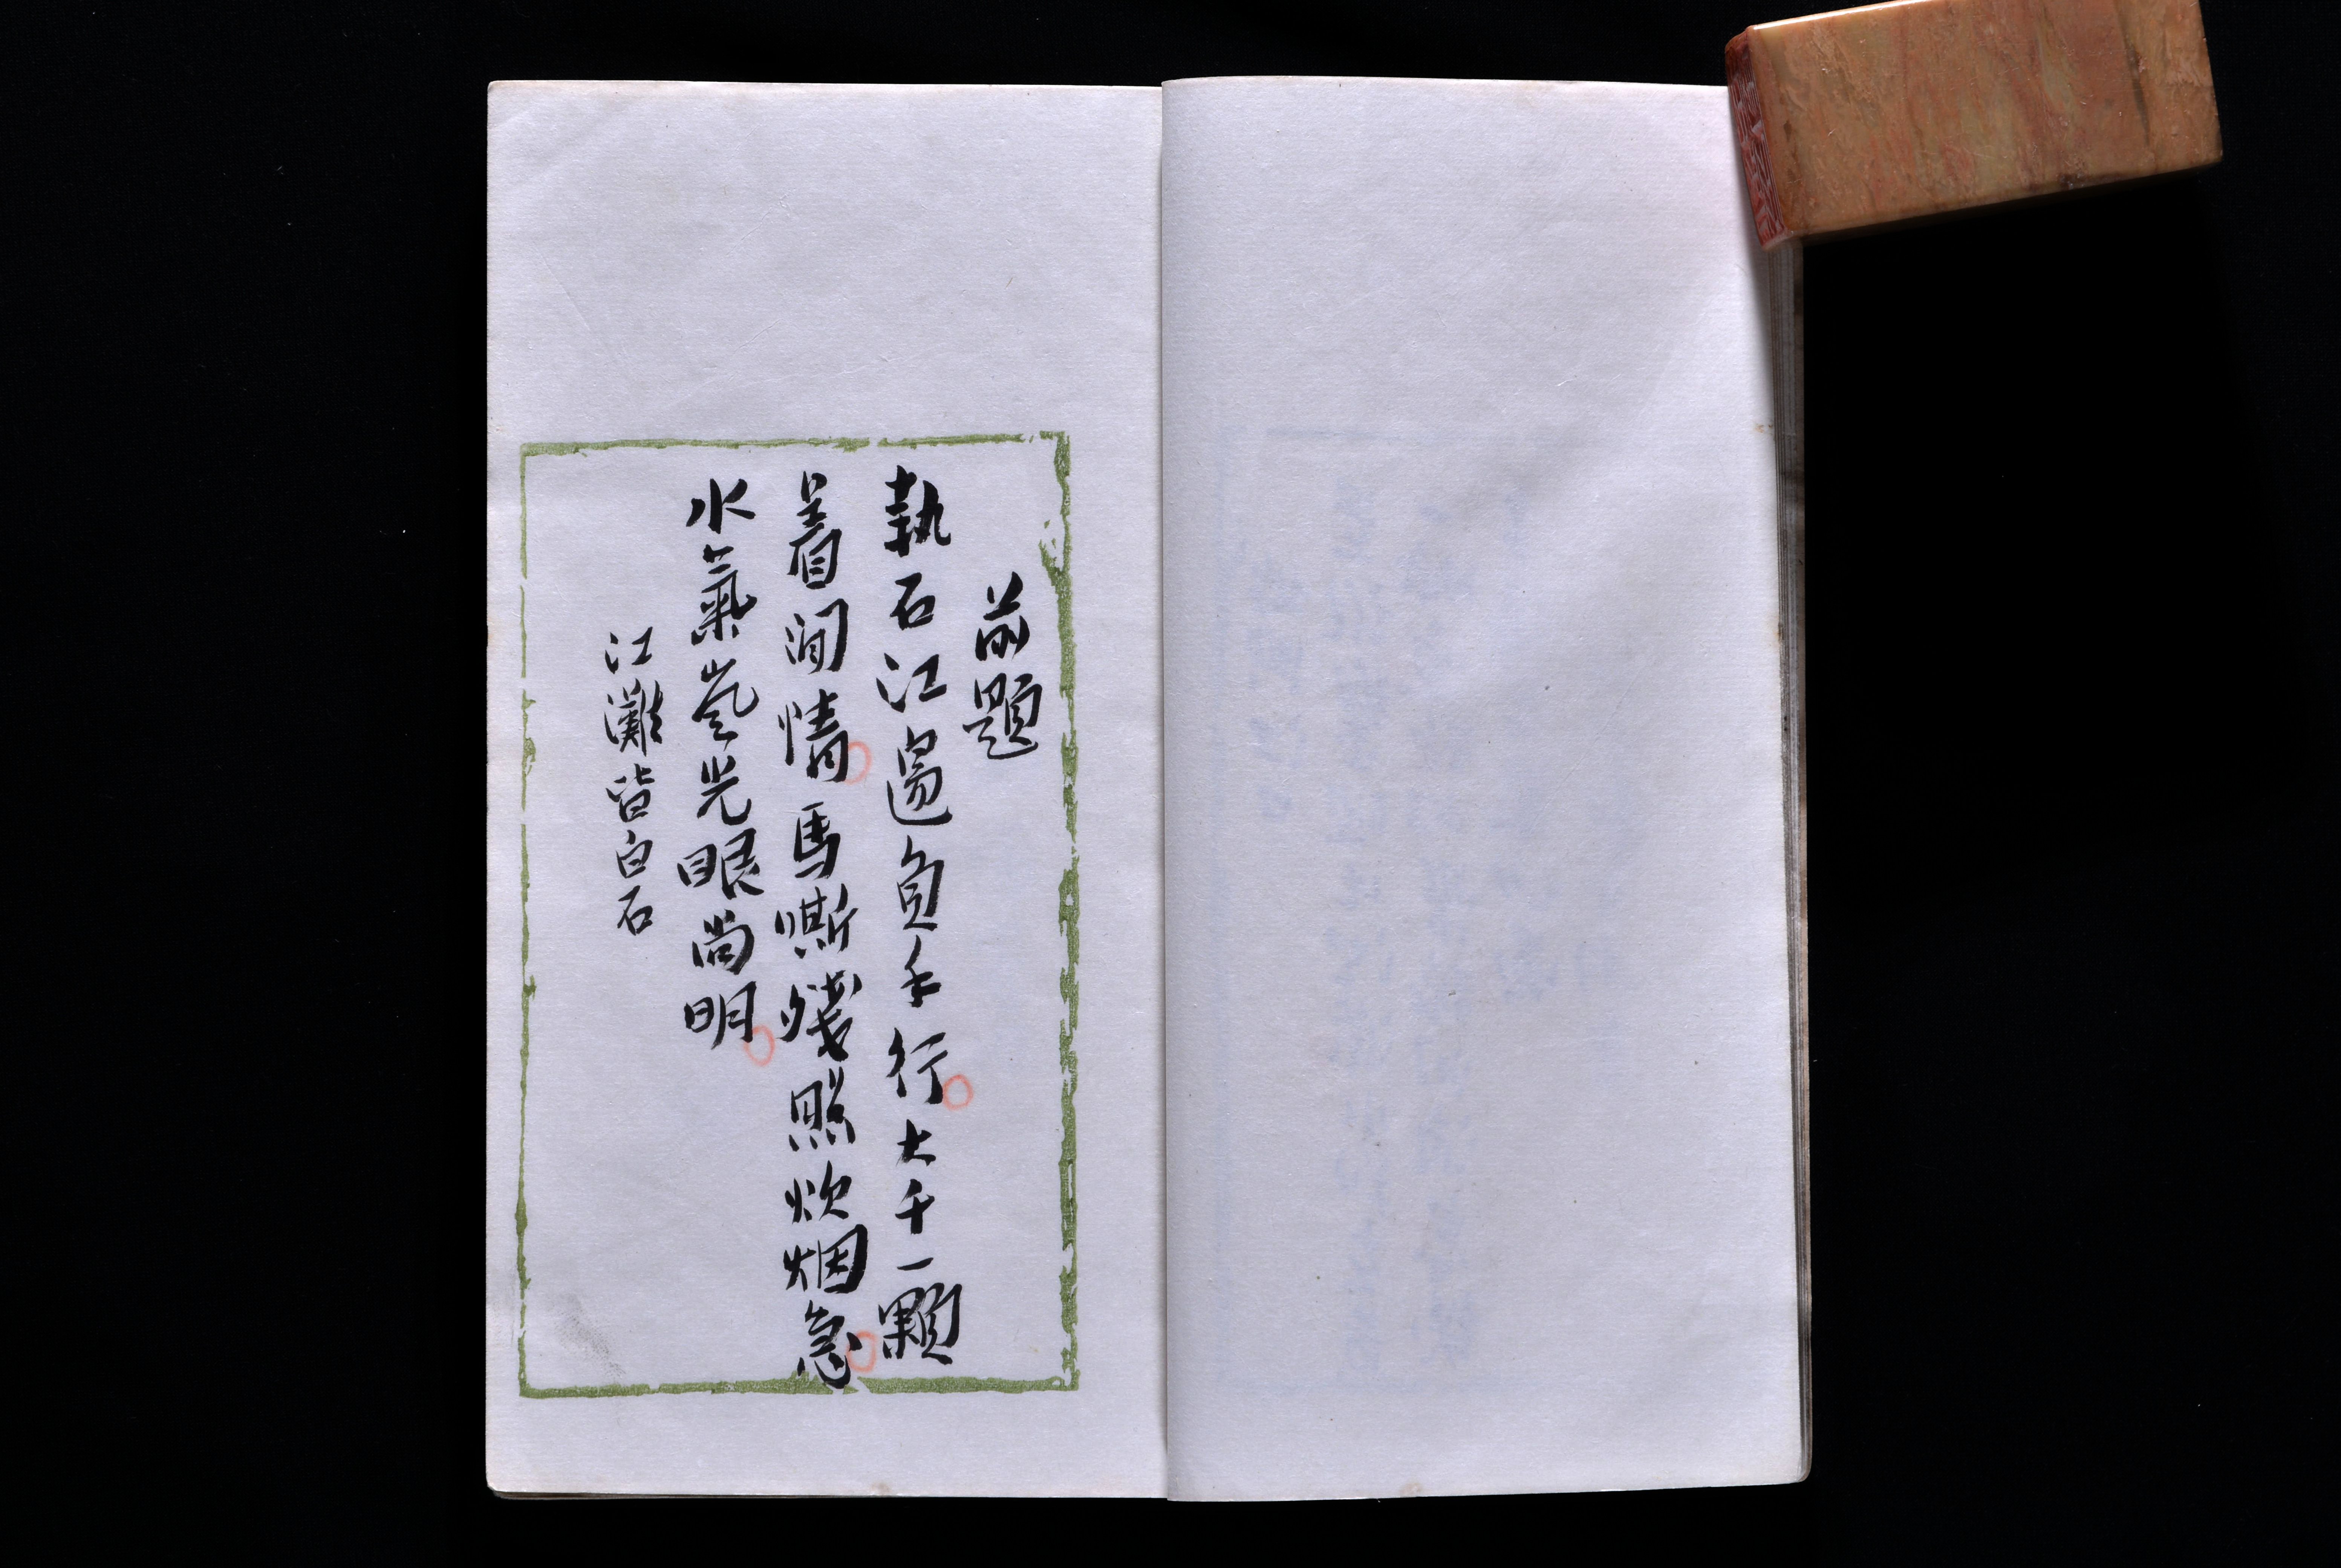 前題
執石江邊負手行大千一顆
着間情馬嘶殘照炊烟急
水氣嵐光眼尚明
江灘皆白石